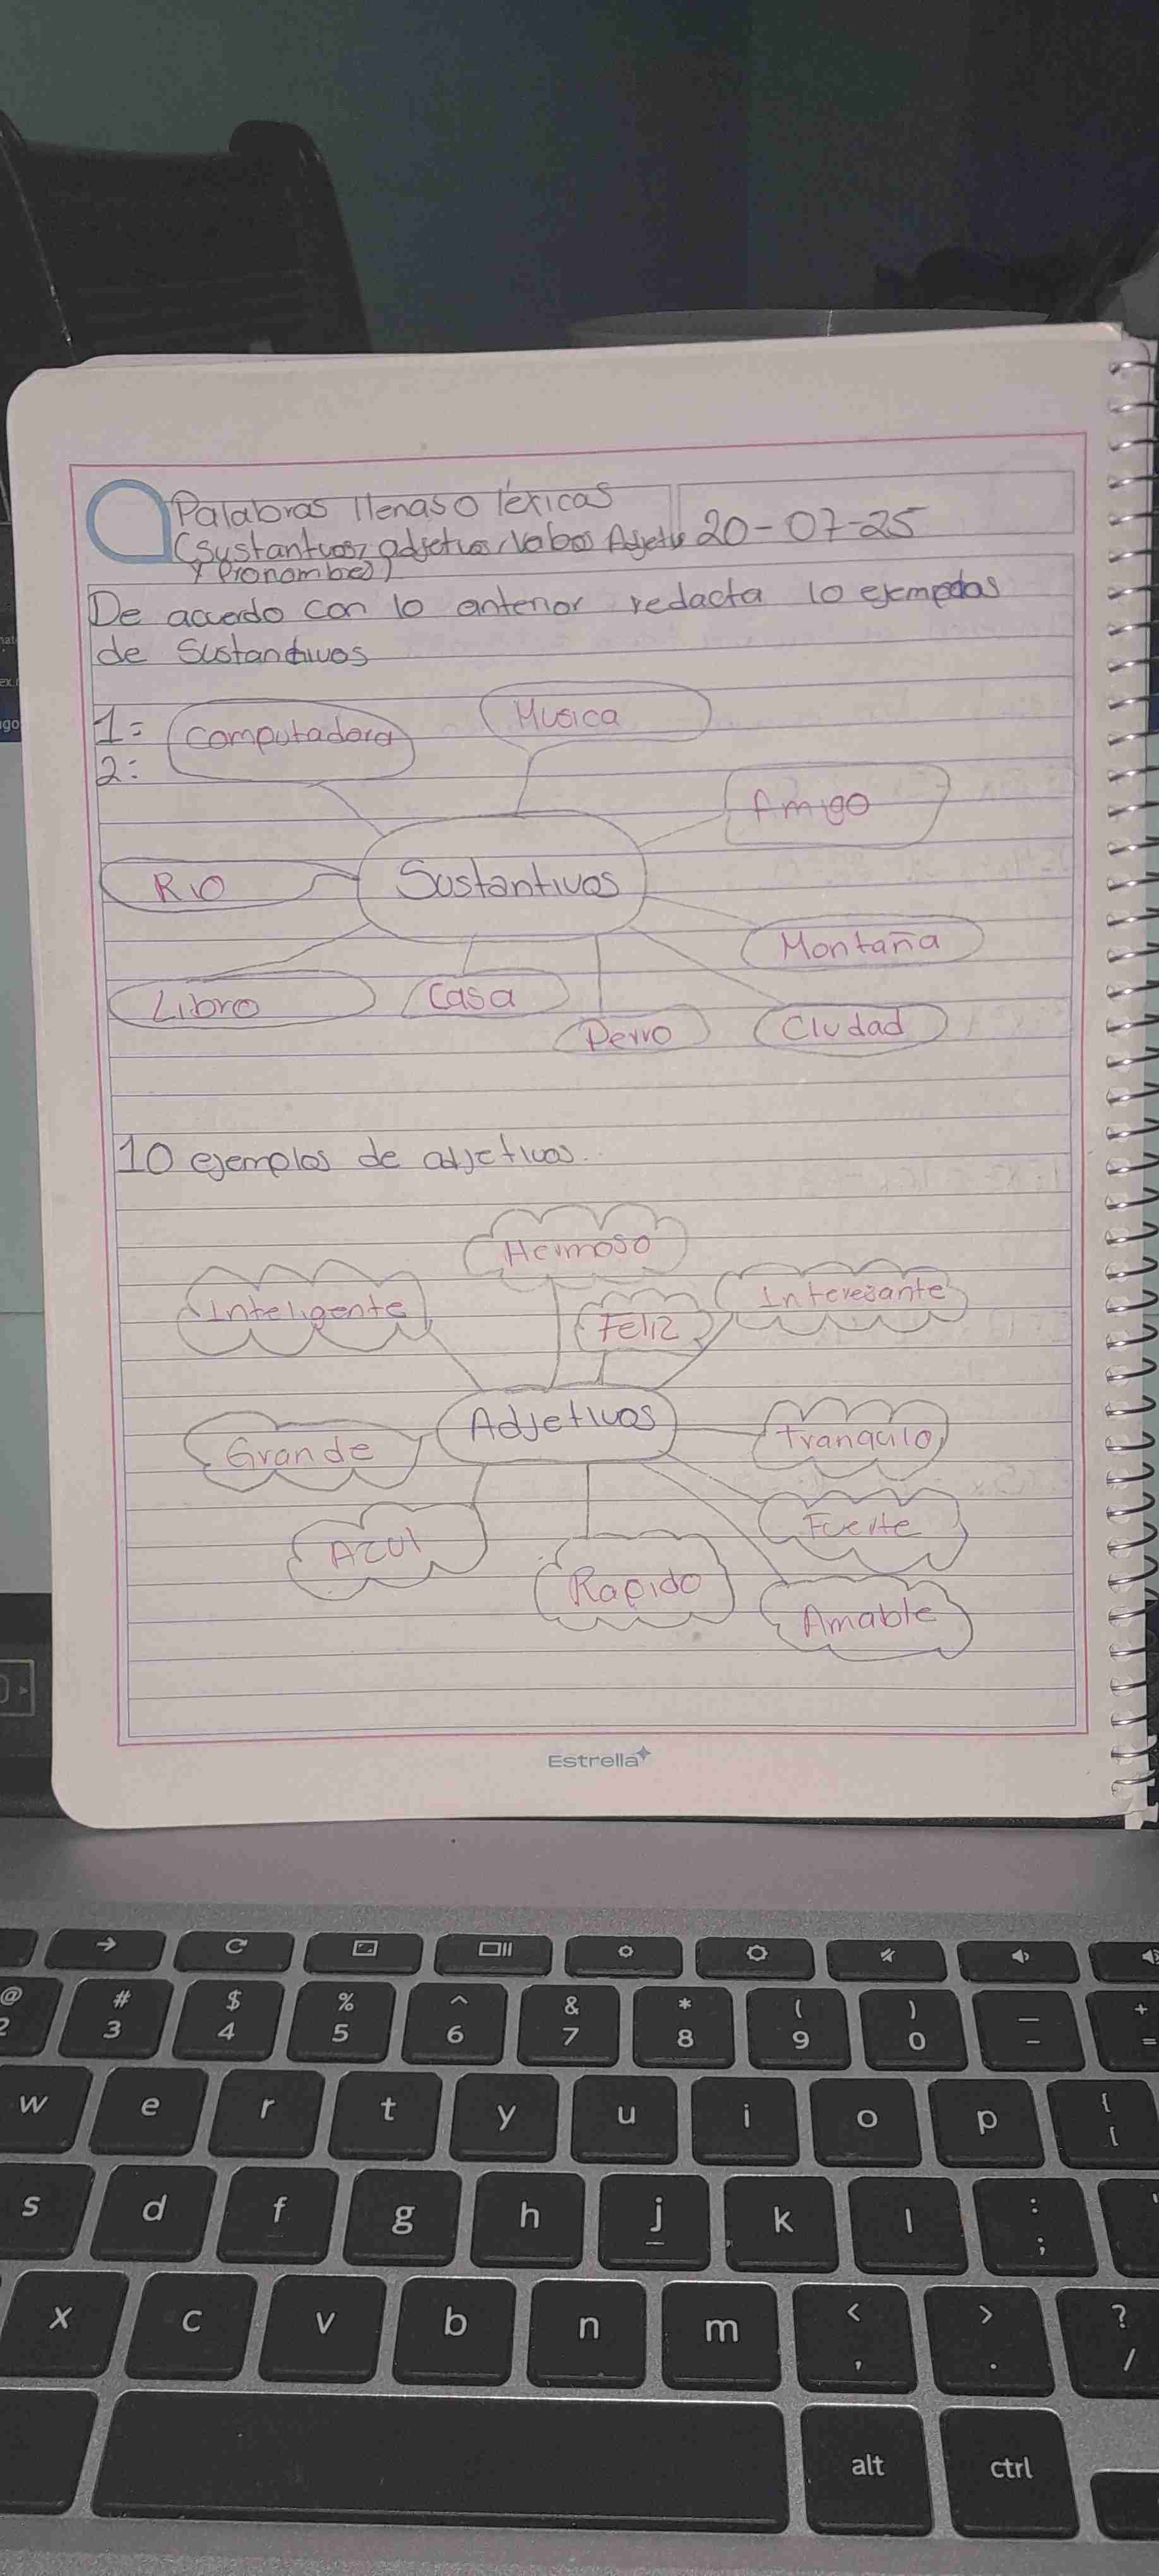 Palabras llenas o léxicas
20-07-25
y Pronombes)
De acuerdo con lo anterior redacta 10 ejemplos
de Sustantivos
1= Computadora
2:
Musica
Amigo
Rio
Sustantivos
Montaña
Libro
Casa
Perro
Ciudad
10 ejemplos de adjetivos.
Hermoso
Inteligente
Feliz
Interesante
Adjetivos
Grande
Tranquilo
Fuerte
Azul
Rapido
Amable
Estrella
→
# $ % ^ & * ( ) — +
3 4 5 6 7 8 9 0 - =
w e r t y u i o p { [
s d f g h j k l : ;
x c v b n m < , > . ? /
alt ctrl